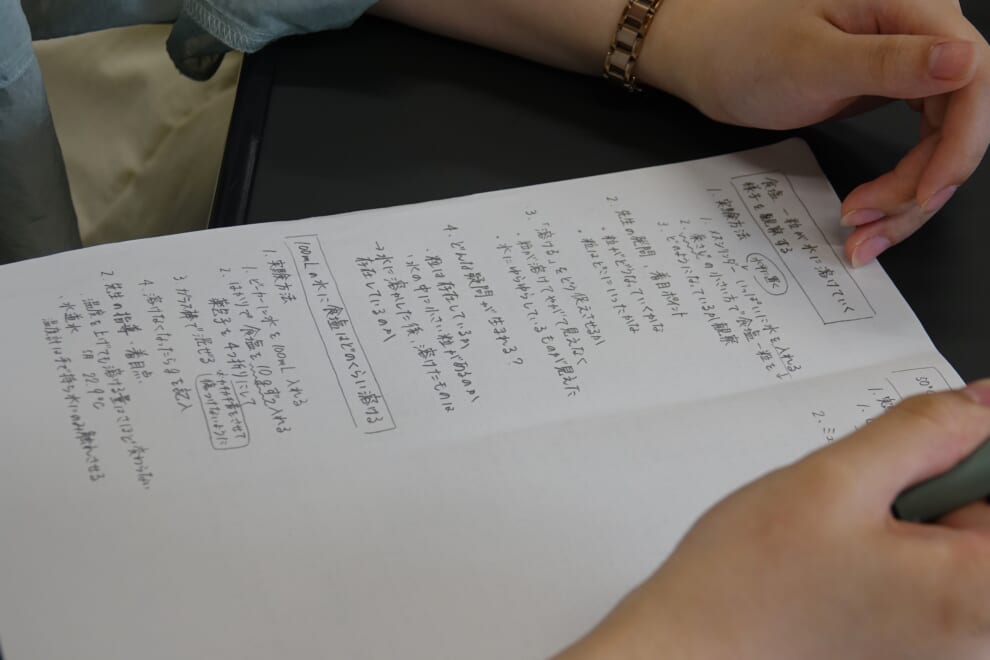 食塩一粒が水に溶けていく
様子を観察する
1. 実験方法
1. メスシリンダーいっぱいに水を入れる
2. 食塩一粒を
3. どのようになっているか観察
2. 先生の 着目ポイント
・粒はどうなっていくかな
・粒はどこにいったかな
3. 「溶ける」をどう捉えさせるか
・粒が溶けてやがて見えなく
・水にゆらゆらしているものが見えた
4. どんな疑問が生まれる?
・粒は存在しているか
・水の中に小さい粒があるのか
→水に溶かした後、溶けたものは
存在しているのか
100mLの水に食塩はどのくらい溶ける
1. 実験方法
1. ビーカーに水を100mL入れる
2. はかりで食塩を10gずつ入れる
薬包紙を4つ折りにして
傷つけないように
3. ガラス棒で混ぜる
4. 溶けなくなったらgを記入
2. 先生の指導・着目点
温度を上げても溶ける量はさほど変わらない
・水道水 22.9℃
温度計は手で持ち水にのみ触れさせる
30℃
1.
1.
2.